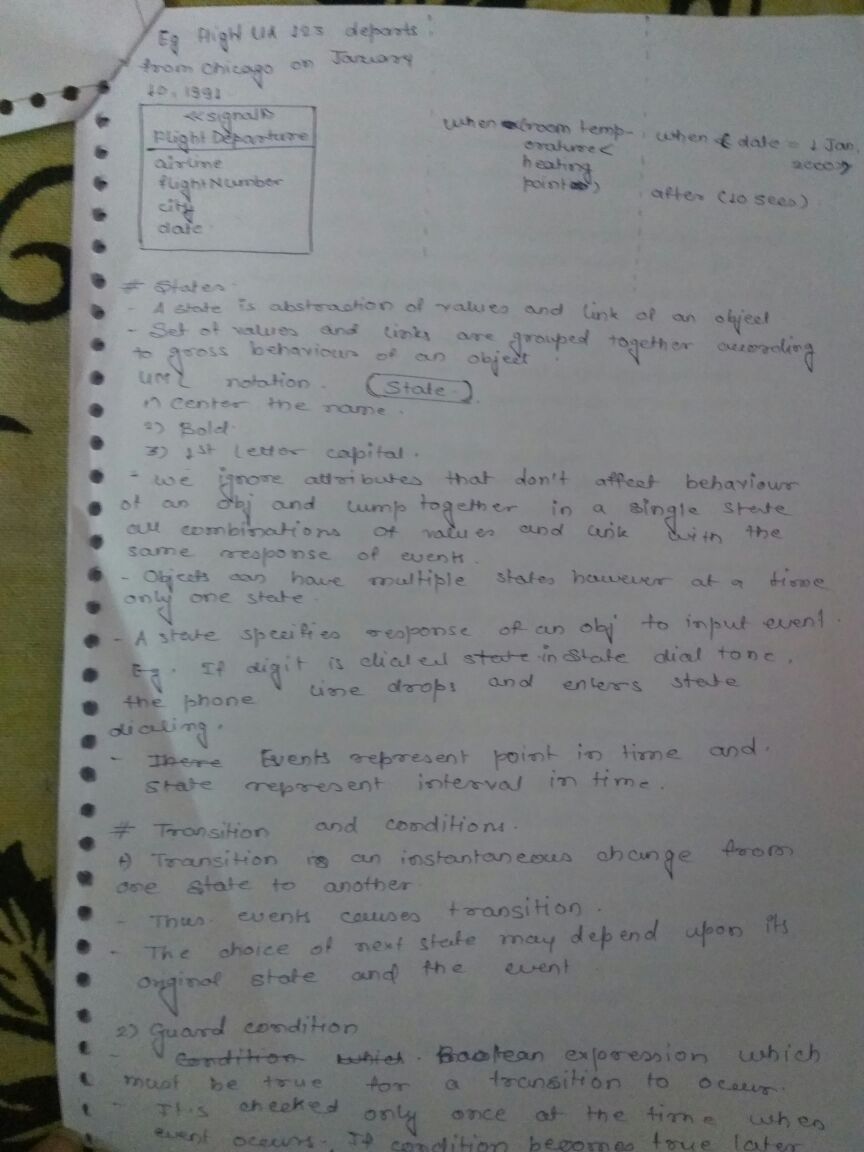 Eg Flight UA 123 departs
from Chicago on January
10, 1991
<<signal>>
FlightDeparture
airline
flightNumber
city
date
when (room temp-
erature <
heating
point)
when (date = 1 Jan,
2000)
after (10 secs)
# States
- A state is abstraction of values and link of an object
- Set of values and links are grouped together according
to gross behaviour of an object
UML notation. (State)
1) Center the name.
2) Bold.
3) 1st letter capital.
- we ignore attributes that don't affect behaviour
of an obj and lump together in a single state
all combinations of values and link with the
same response of events.
- Objects can have multiple states however at a time
only one state.
- A state specifies response of an obj to input event.
Eg. If digit is dialed state in state dial tone,
the phone line drops and enters state
dialing.
- There Events represent point in time and
state represent interval in time.
# Transition and conditions.
1) Transition is an instantaneous change from
one state to another
- Thus events causes transition.
- The choice of next state may depend upon its
original state and the event
2) Guard condition
- Condition which Boolean expression which
must be true for a transition to occur.
- It is checked only once at the time when
event occurs. If condition becomes true later